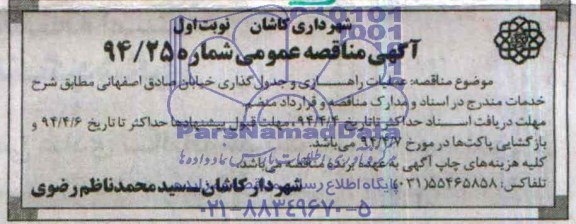 شهرداری کاشان نوبت اول
آگهی مناقصه عمومی شماره ۹۴/۲۵
موضوع مناقصه: عملیات راهسازی و جدول گذاری خیابان صادق اصفهانی مطابق شرح
خدمات مندرج در اسناد و مدارک مناقصه و قرارداد منضم.
مهلت دریافت اسناد حداکثر تا تاریخ ۹۴/۴/۴، مهلت قبول پیشنهادها حداکثر تا تاریخ ۹۴/۴/۶ و
بازگشایی پاکت‌ها در مورخ ۹۴/۴/۷ می‌باشد.
کلیه هزینه‌های چاپ آگهی به عهده برنده مناقصه می‌باشد.
تلفاکس: ۵۵۴۶۵۸۵۸(۰۳۱)
شهردار کاشان ـ سید محمد ناظم رضوی
ParsNamadData
۰۲۱-۸۸۳۴۹۶۷۰-۵